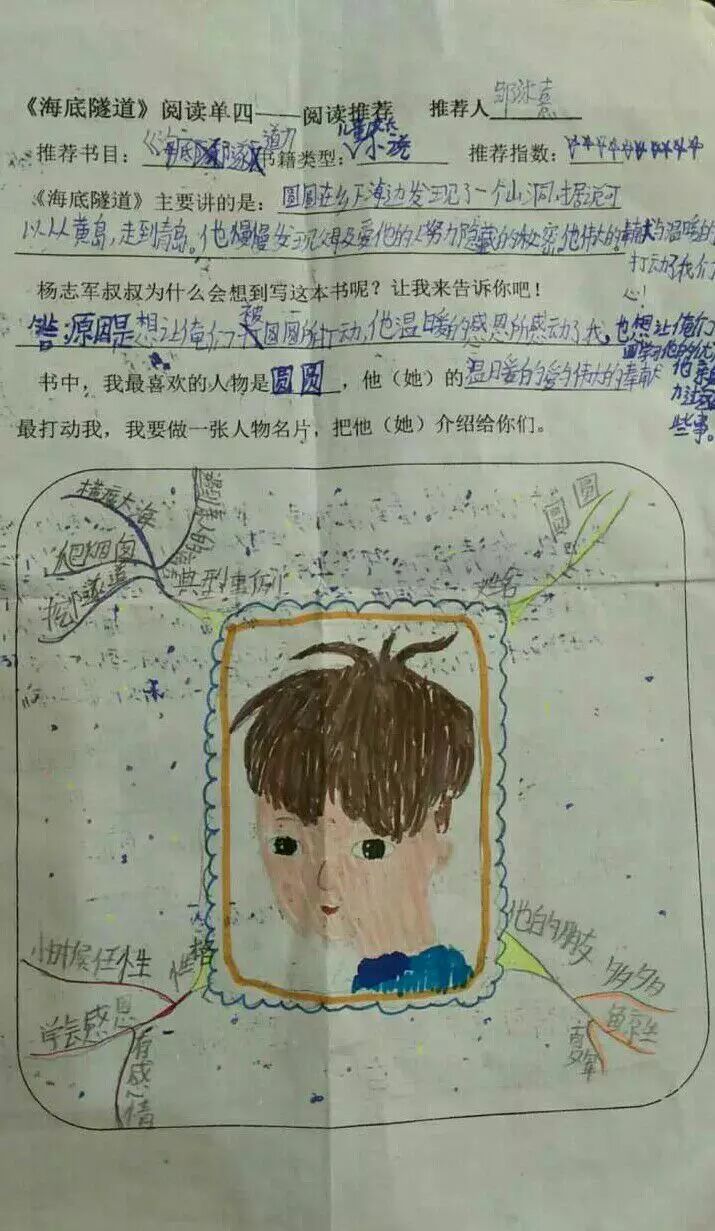 《海底隧道》阅读单四——阅读推荐 推荐人
推荐书目：《海底隧道》书籍类型：儿童成长小说 推荐指数：☆☆☆☆☆☆☆☆☆
《海底隧道》主要讲的是：圆圆在乡下海边发现了一个山洞，据说可
以从黄岛，走到青岛。他慢慢发现父母及爱他的人努力隐藏的秘密。他伟大的奉献与温暖的
打动了我们
心！
杨志军叔叔为什么会想到写这本书呢？让我来告诉你吧！
答：原因是想让俺们被圆圆所打动，他温暖的感恩所感动了我，也想让俺们
面学习他的优
书中，我最喜欢的人物是圆圆，他（她）的温暖的爱与伟大的奉献
些事。
最打动我，我要做一张人物名片，把他（她）介绍给你们。
横渡大海
爬烟囱
挖隧道
典型事例
姓名
圆圆
性格
小时候任性
学会感恩
有感情
他的朋友
多多多